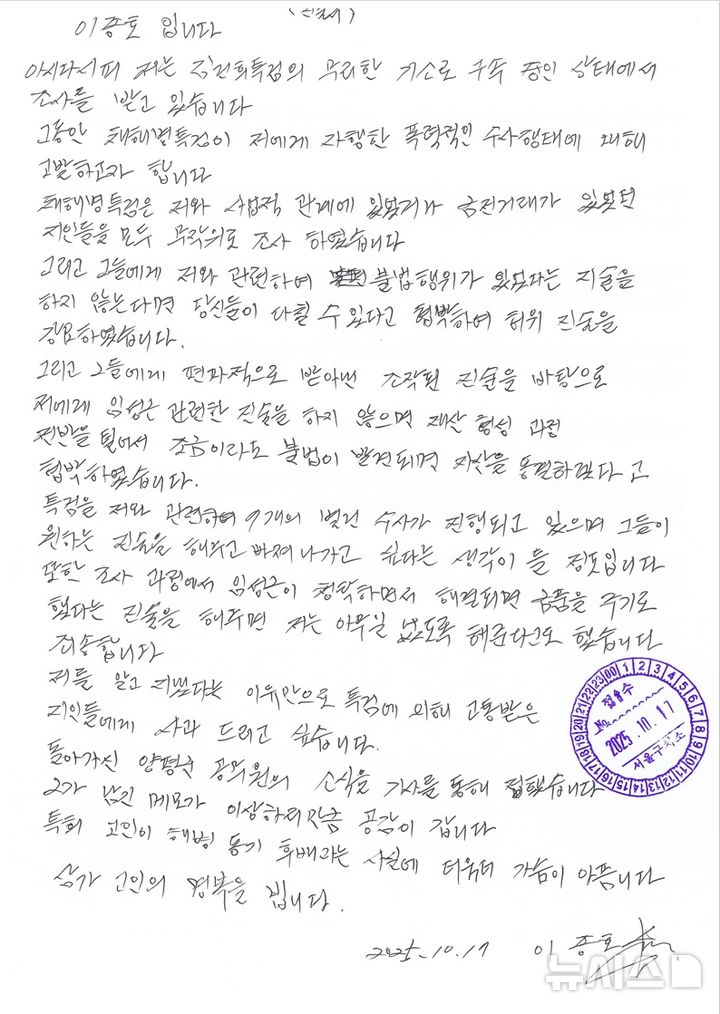 (진술서)
이종호 입니다
아시다시피 저는 김건희특검의 무리한 기소로 구속 중인 상태에서
조사를 받고 있습니다
그동안 채해병특검이 저에게 자행한 폭력적인 수사행태에 대해
고발하고자 합니다
채해병특검은 저와 사업적 관계에 있었거나 금전거래가 있었던
지인들을 모두 무작위로 조사 하였습니다
그리고 그들에게 저와 관련하여 불법행위가 있었다는 진술을
하지 않는다면 당신들이 다칠 수 있다고 협박하여 허위 진술을
강요하였습니다.
그리고 그들에게 편파적으로 받아낸 조작된 진술을 바탕으로
저에게 임성근 관련한 진술을 하지 않으면 재산 형성 과정
전반을 털어서 조금이라도 불법이 발견되면 자산을 동결하겠다고
협박하였습니다.
특검을 저와 관련하여 9개의 별건 수사가 진행되고 있으며 그들이
원하는 진술을 해주고 빠져나가고 싶다는 생각이 들 정도입니다
또한 조사 과정에서 임성근이 청탁하면서 해결되면 금품을 주기로
했다는 진술을 해주면 저는 아무일 없도록 해준다고도 했습니다
죄송합니다
저를 알고 지냈다는 이유만으로 특검에 의해 고통받은
지인들에게 사과 드리고 싶습니다.
돌아가신 양평군 공무원의 소식을 기사를 통해 접했습니다
그가 남긴 메모가 이상하리만큼 공감이 갑니다
특히 고인이 해병 동기 후배라는 사실에 더욱더 가슴이 아픕니다
삼가 고인의 명복을 빕니다.
2025.10.17 이종호
접수
No.
2025.10.17
서울구치소
00 1 2 3 4 5 6 7 8 9 10 11 12 13 14 15 16 17 18 19 20 21 22 23
뉴시스